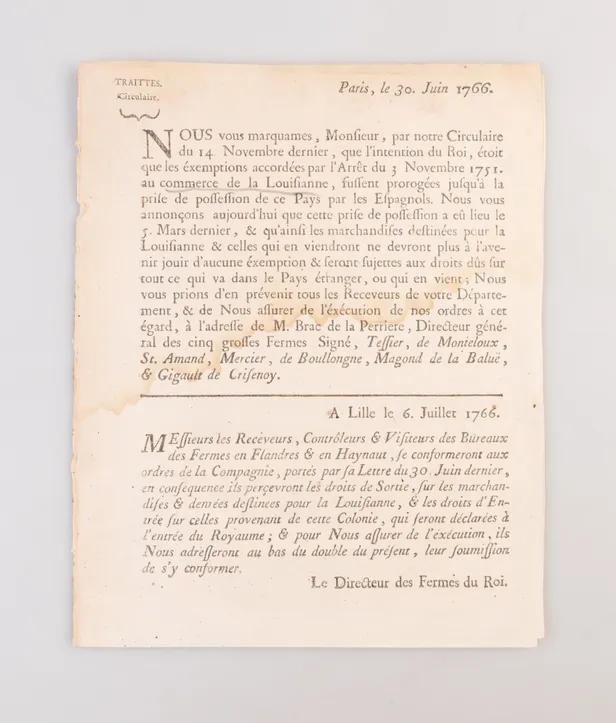 TRAITTES.
Circulaire.
Paris, le 30. Juin 1766.
NOUS vous marquames, Monſieur, par notre Circulaire
du 14. Novembre dernier, que l'intention du Roi, étoit
que les éxemptions accordées par l'Arrêt du 3 Novembre 1751.
au commerce de la Louiſianne, fuſſent prorogées juſqu'à la
priſe de poſſeſſion de ce Pays par les Eſpagnols. Nous vous
annonçons aujourd'hui que cette priſe de poſſeſſion a eû lieu le
5. Mars dernier, & qu'ainſi les marchandiſes deſtinées pour la
Louiſianne & celles qui en viendront ne devront plus à l'ave-
nir jouir d'aucune éxemption & ſeront ſujettes aux droits dûs ſur
tout ce qui va dans le Pays étranger, ou qui en vient; Nous
vous prions d'en prévenir tous les Receveurs de votre Départe-
ment, & de Nous aſſurer de l'éxécution de nos ordres à cet
égard, à l'adreſſe de M. Brac de la Perriere, Directeur géné-
ral des cinq groſſes Fermes Signé, Teſſier, de Monteloux,
St. Amand, Mercier, de Boullongne, Magond de la Baluë,
& Gigault de Criſenoy.
A Lille le 6. Juillet 1766.
MEſſieurs les Recéveurs, Contrôleurs & Viſiteurs des Bureaux
des Fermes en Flandres & en Haynaut, ſe conformeront aux
ordres de la Compagnie, portés par ſa Lettre du 30. Juin dernier,
en conſéquence ils perçevront les droits de Sortie, ſur les marchan-
diſes & denrées deſtinées pour la Louiſianne, & les droits d'En-
trée ſur celles provenant de cette Colonie, qui ſeront déclarées à
l'entrée du Royaume; & pour Nous aſſurer de l'éxécution, ils
Nous adreſſeront au bas du double du préſent, leur ſoumiſſion
de s'y conformer.
Le Directeur des Fermes du Roi.